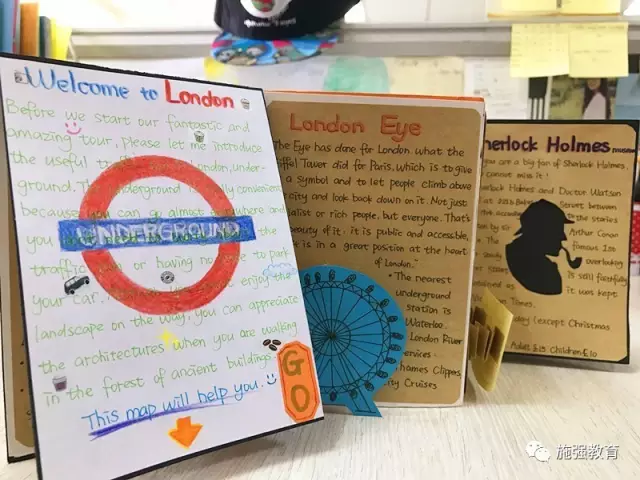 Welcome to London
Before we start our fantastic and
amazing tour, Please let me introduce
the useful London, under-
ground. The underground is convenient
because you can go almost anywhere and
you
traffic or having no to park
your car. enjoy the
landscape on the way, you can appreciate
the architectures when you are walking
in the forest of ancient buildings.
This map will help you.
UNDERGROUND
GO
London Eye
The Eye has done for London what the
Eiffel Tower did for Paris, which is to give
a symbol and to let people climb above
city and look back down on it. Not just
or rich people, but everyone. That's
beauty of it: it is public and accessible,
it is in a great position at the heart
of London."
The nearest
underground
station is
Waterloo.
London River
Services
Thames Clippers
City Cruises
Sherlock Holmes museum
you are a big fan of Sherlock Holmes,
cannot miss it!
Sherlock Holmes and Doctor Watson
at 221b Baker Street between
the stories
Arthur Conan
famous 1st
overlooking
is still faithfully
it was kept
Times.
day (except Christmas
Adult £15 Children £10
施强教育